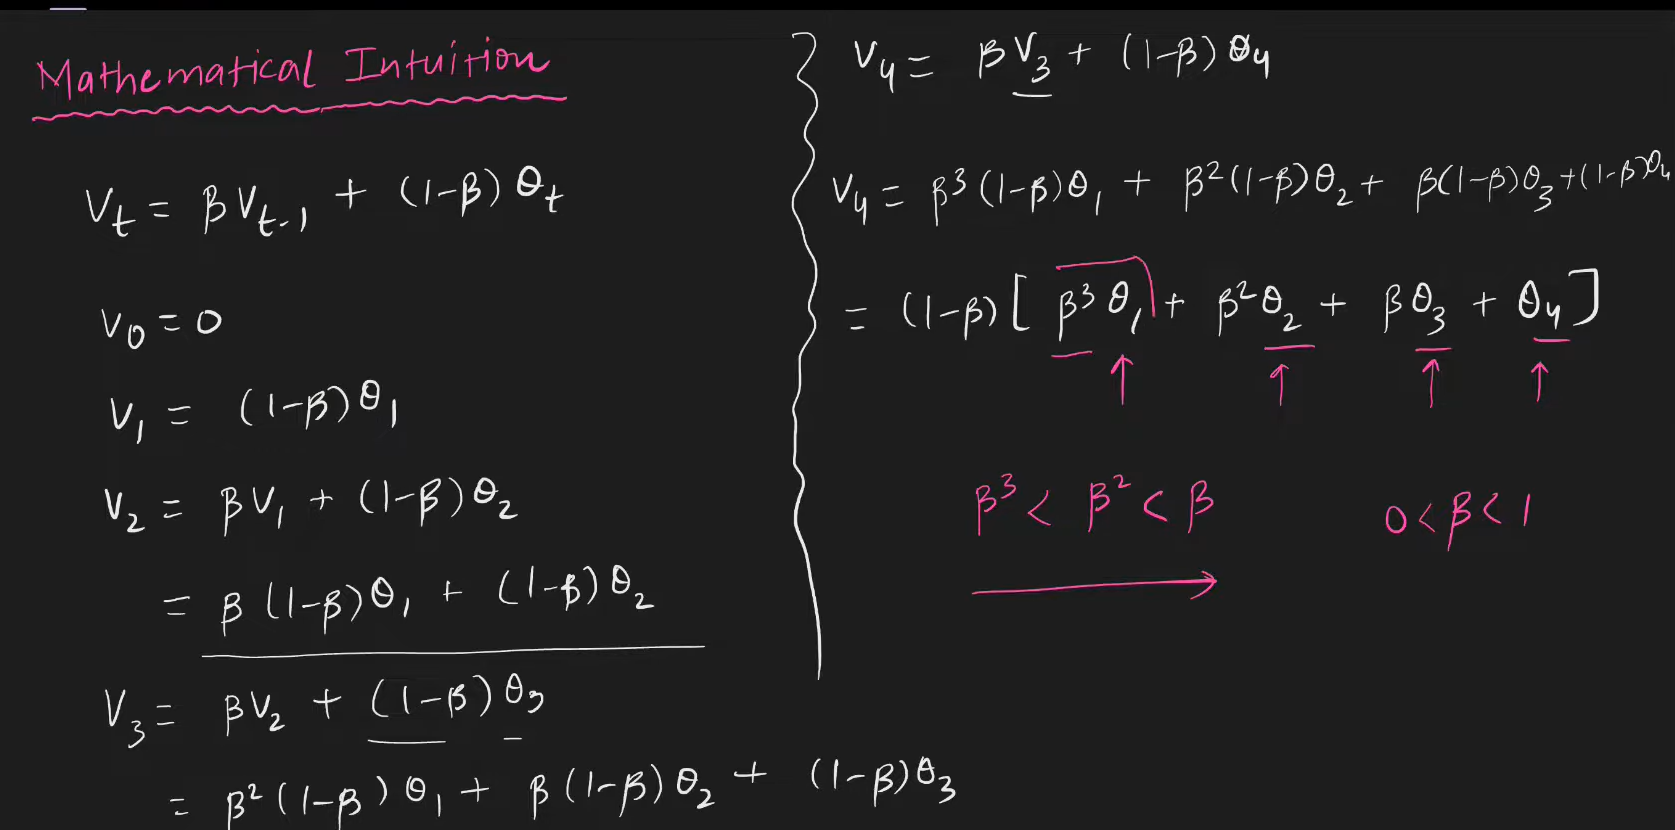 Mathematical Intuition
V_t = βV_{t-1} + (1-β) θ_t
V_0 = 0
V_1 = (1-β)θ_1
V_2 = βV_1 + (1-β)θ_2
= β(1-β)θ_1 + (1-β)θ_2
V_3 = βV_2 + (1-β)θ_3
= β²(1-β)θ_1 + β(1-β)θ_2 + (1-β)θ_3
V_4 = βV_3 + (1-β)θ_4
V_4 = β³(1-β)θ_1 + β²(1-β)θ_2 + β(1-β)θ_3 + (1-β)θ_4
= (1-β)[β³θ_1 + β²θ_2 + βθ_3 + θ_4]
β³ < β² < β 0 < β < 1